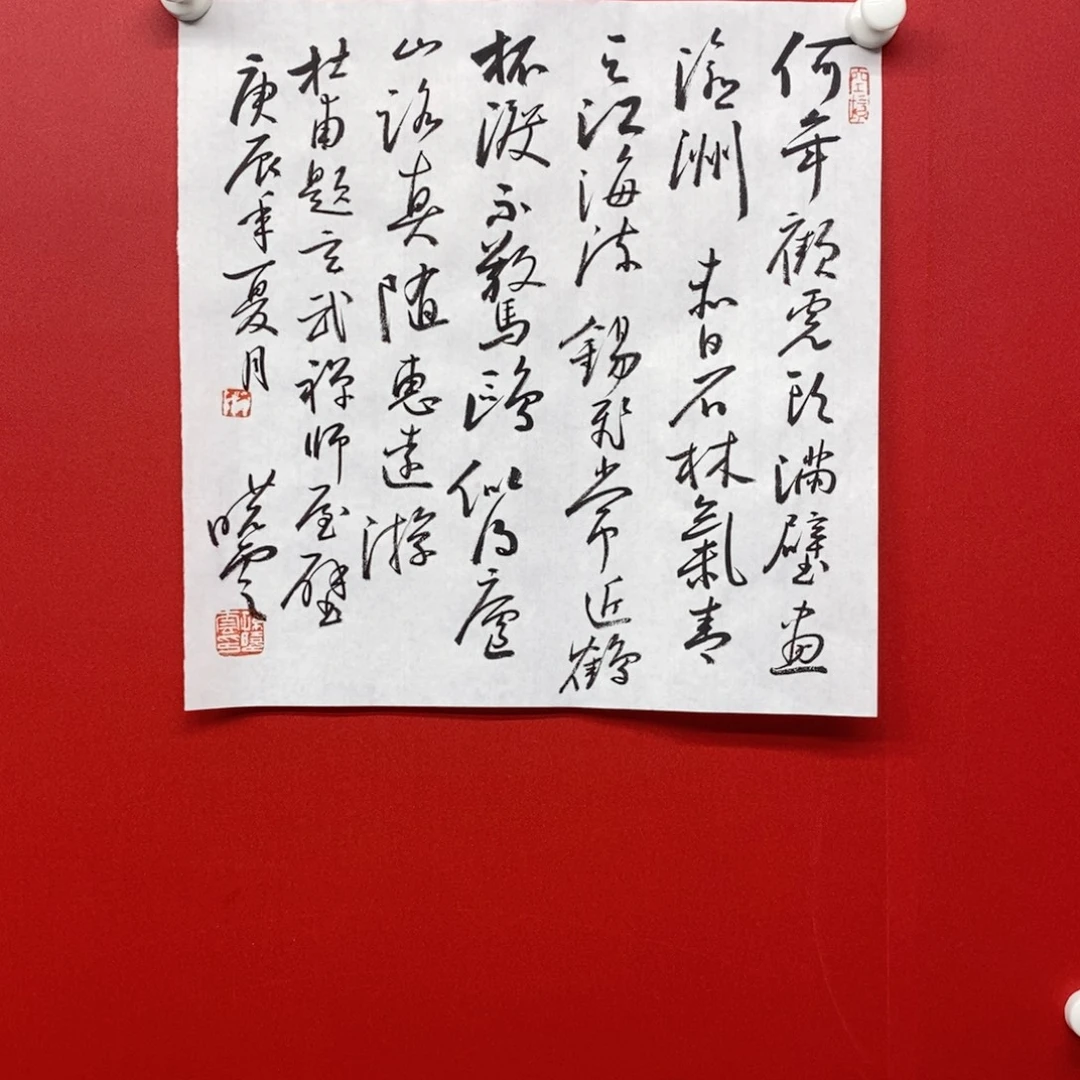 何年顧虎頭滿壁畫
滄洲 赤日石林氣青
天江海流 錫飛常近鶴
杯渡不驚鷗 似得廬
山路真隨惠遠游
杜甫題玄武禪師屋壁
庚辰年夏月 曉雲